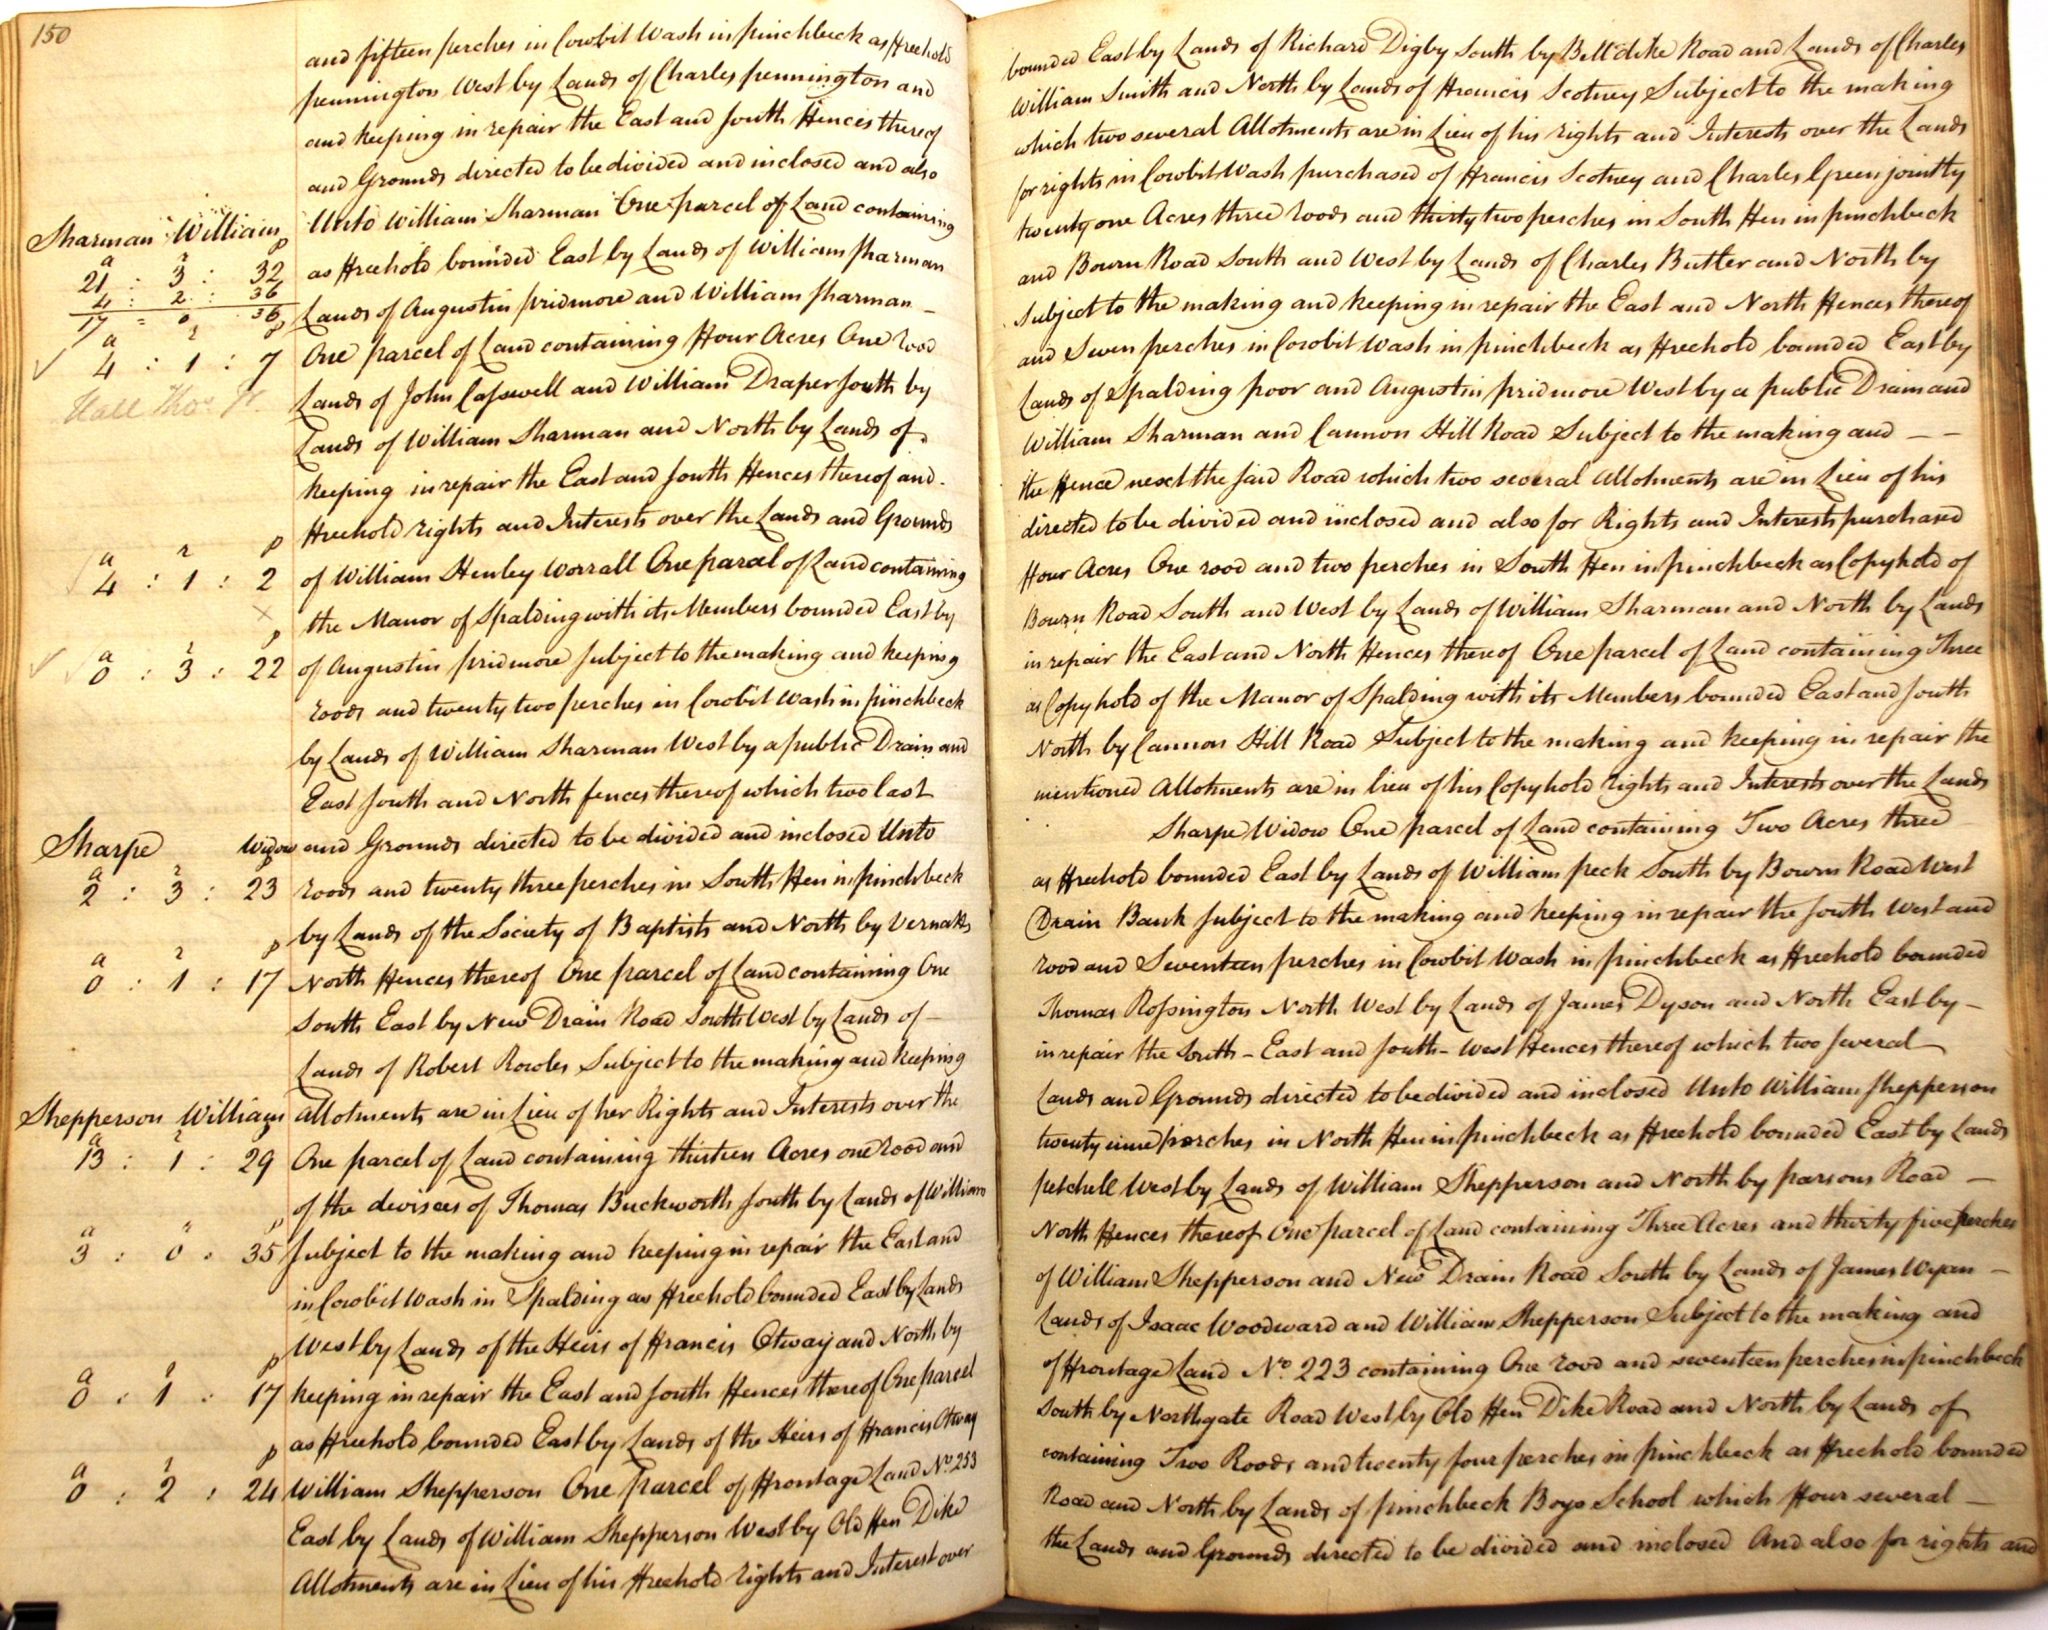 150
and fifteen perches in Cowbit Wash in pinchbeck as Freehold bounded East by Lands of Richard Digby South by Belldike Road and Lands of Charles
pennington West by Lands of Charles pennington and William Smith and North by Lands of Francis Scotney Subject to the making
and keeping in repair the East and South Fences thereof which two several Allotments are in Lieu of his rights and Interests over the Lands
and Grounds directed to be divided and inclosed and also for rights in Cowbit Wash purchased of Francis Scotney and Charles Green jointly
Sharman William
Unto William Sharman One parcel of Land containing twenty one Acres three roods and thirty two perches in South Fen in pinchbeck
a r p
21 : 3 : 32
as Freehold bounded East by Lands of William Sharman and Bourn Road South and West by Lands of Charles Butler and North by
4 : 2 : 36
17 = 0 36
Lands of Augustin pridmore and William Sharman Subject to the making and keeping in repair the East and North Fences thereof
a r p
4 : 1 : 7
One parcel of Land containing Four Acres One rood and Seven perches in Cowbit Wash in pinchbeck as Freehold bounded East by
Hall Thos
Lands of John Casswell and William Draper South by Lands of Spalding poor and Augustin pridmore West by a public Drain and
Lands of William Sharman and North by Lands of William Sharman and Cannon Hill Road Subject to the making and
keeping in repair the East and South Fences thereof and the Fence next the said Road which two several Allotments are in Lieu of his
Freehold rights and Interests over the Lands and Grounds directed to be divided and inclosed and also for Rights and Interests purchased
a r p
4 : 1 : 2
of William Henley Worrall One parcel of Land containing Four Acres One rood and two perches in South Fen in pinchbeck as Copyhold of
the Manor of Spalding with its Members bounded East by Bourn Road South and West by Lands of William Sharman and North by Lands
a r p
0 : 3 : 22
of Augustin pridmore Subject to the making and keeping in repair the East and North Fences thereof One parcel of Land containing Three
roods and twenty two perches in Cowbit Wash in pinchbeck as Copyhold of the Manor of Spalding with its Members bounded East and South
by Lands of William Sharman West by a public Drain and North by Cannon Hill Road Subject to the making and keeping in repair the
East South and North fences thereof which two last mentioned Allotments are in lieu of his Copyhold rights and Interests over the Lands
Sharpe Widow
and Grounds directed to be divided and inclosed Unto Sharpe Widow One parcel of Land containing Two Acres three
a r p
2 : 3 : 23
roods and twenty three perches in South Fen in pinchbeck as Freehold bounded East by Lands of William peck South by Bourn Road West
by Lands of the Society of Baptists and North by Vernatts Drain Bank Subject to the making and keeping in repair the South West and
a r p
0 : 1 : 17
North Fences thereof One parcel of Land containing One rood and Seventeen perches in Cowbit Wash in pinchbeck as Freehold bounded
South East by New Drain Road South West by Lands of Thomas Rossington North West by Lands of James Dyson and North East by
Lands of Robert Rowles Subject to the making and keeping in repair the South East and South West Fences thereof which two several
Shepperson William
Allotments are in Lieu of her Rights and Interests over the Lands and Grounds directed to be divided and inclosed Unto William Shepperson
a r p
13 : 1 : 29
One parcel of Land containing thirteen Acres one rood and twenty nine perches in North Fen in pinchbeck as Freehold bounded East by Lands
of the devisees of Thomas Buckworth South by Lands of William petchell West by Lands of William Shepperson and North by parsons Road
a r p
3 : 0 : 35
Subject to the making and keeping in repair the East and North Fences thereof One parcel of Land containing Three Acres and thirty five perches
in Cowbit Wash in Spalding as Freehold bounded East by Lands of William Shepperson and New Drain Road South by Lands of James Wyan
West by Lands of the Heirs of Francis Otway and North by Lands of Isaac Woodward and William Shepperson Subject to the making and
a r p
0 : 1 : 17
keeping in repair the East and South Fences thereof One parcel of Frontage Land No. 223 containing One rood and seventeen perches in pinchbeck
as Freehold bounded East by Lands of the Heirs of Francis Otway South by Northgate Road West by Old Fen Dike Road and North by Lands of
a r p
0 : 2 : 24
William Shepperson One parcel of Frontage Land No. 253 containing Two Roods and twenty four perches in pinchbeck as Freehold bounded
East by Lands of William Shepperson West by Old Fen Dike Road and North by Lands of pinchbeck Boys School which Four several
Allotments are in Lieu of his Freehold rights and Interest over the Lands and Grounds directed to be divided and inclosed And also for rights and